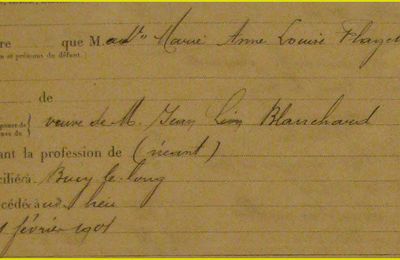 re que M. adᵉ Marie Anne Louise Flayel
m et prénoms du défunt.)
de
veuve de M. Jean Léon Blanchard
ant la profession de (néant)
cilié à Bucy-le-long
cédé au dit lieu
1 février 1901